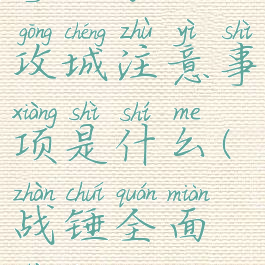 gōng chéng zhù yì shì
攻城注意事
xiàng shì shí me
项是什么(
zhàn chuí quán miàn
战锤全面